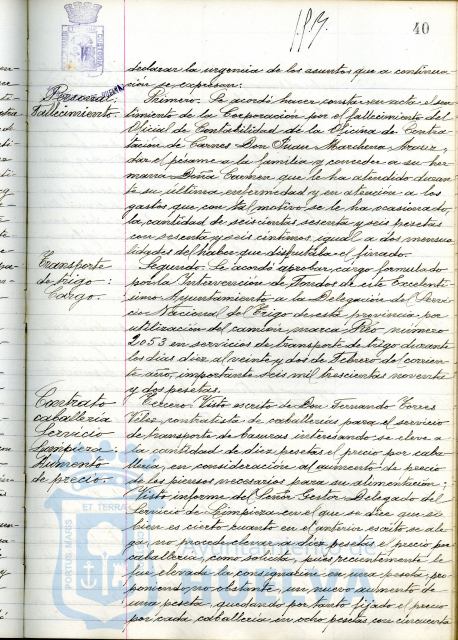 40
declarar la urgencia de los asuntos que a continua-
ción se expresan:
Personal:
Fallecimiento.
Primero. Se acordó hacer constar en acta el sen-
timiento de la Corporación por el fallecimiento del
Oficial de Contabilidad de la Oficina de Contra-
tación de Carnes Don Juan Marchena
dar el pésame a la familia y conceder a su her-
mana Doña Carmen que le ha atendido duran-
te su última enfermedad y en atención a los
gastos que con tal motivo se le ha ocasionado,
la cantidad de seiscientas sesenta y seis pesetas
con sesenta y seis céntimos, igual a dos mensua-
lidades del haber que disfrutaba el finado.
Transporte
de trigo:
Cargo.
Segundo. Se acordó aprobar cargo formulado
por la Intervención de Fondos de este Excelentí-
simo Ayuntamiento a la Delegación de Servi-
cio Nacional del Trigo de esta provincia por
utilización del camión marca número
2053 en servicios de transporte de trigo durante
los días diez al veinte y dos de Febrero del corrien-
te año, importante seis mil trescientas noventa
y dos pesetas.
Contrato
caballería
Servicio
Limpieza:
Aumento
de precio.
Tercero. Visto escrito de Don Fernando Torres
Vélez, contratista de caballerías para el servicio
de transporte de basuras interesando se eleve a
la cantidad de diez pesetas el precio por caba-
llería, en consideración al aumento de precio
de los piensos necesarios para su alimentación;
Visto informe del Señor Gestor Delegado del
Servicio de Limpieza en el que se dice que si
bien es cierto cuanto en el anterior escrito se ale-
ga, no procede elevar a diez pesetas el precio por
caballería, como solicita, pues recientemente le
fue elevada la consignación en una peseta, pro-
poniendo, no obstante, un nuevo aumento de
una peseta, quedando por tanto fijado el precio
por cada caballería en ocho pesetas con cincuenta
PORTUS MARIS ET TERRAE
Ayuntamiento de
HUELVA